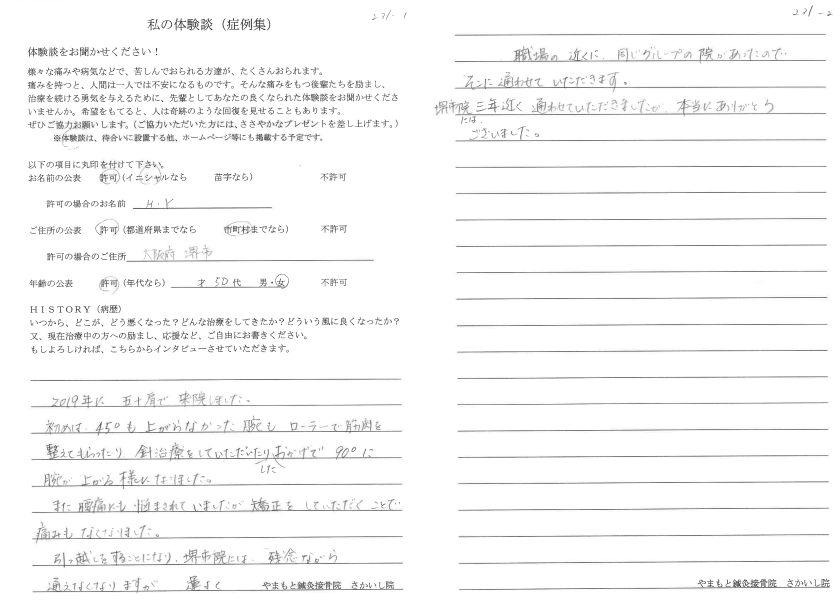 231-1
私の体験談（症例集）
体験談をお聞かせください！
様々な痛みや病気などで、苦しんでおられる方達が、たくさんおられます。
痛みを持つと、人間は一人では不安になるものです。そんな痛みをもつ後輩たちを励まし、
治療を続ける勇気を与えるために、先輩としてあなたの良くなられた体験談をお聞かせくださ
いませんか。希望をもてると、人は奇跡のような回復を見せることもあります。
ぜひご協力お願いします。（ご協力いただいた方には、ささやかなプレゼントを差し上げます。）
※体験談は、待合いに設置する他、ホームページ等にも掲載する予定です。
以下の項目に丸印を付けて下さい。
お名前の公表 許可（イニシャルなら 苗字なら） 不許可
許可の場合のお名前 H.Y
ご住所の公表 許可（都道府県までなら 市町村までなら） 不許可
許可の場合のご住所 大阪府 堺市
年齢の公表 許可（年代なら） 才 50代 男・女 不許可
HISTORY（病歴）
いつから、どこが、どう悪くなった？どんな治療をしてきたか？どういう風に良くなったか？
又、現在治療中の方への励まし、応援など、ご自由にお書きください。
もしよろしければ、こちらからインタビューさせていただきます。
2019年に 五十肩で 来院しました。
初めは 45°も 上がらなかった 腕も ローラーで筋肉を
整えてもらったり 針治療をしていただいたりしたおかげで 90°に
腕が 上がる 様になりました。
また 腰痛にも 悩まされていましたが 矯正を していただくことで
痛みも なくなりました。
引っ越しをすることになり、堺市院には 残念ながら
通えなくなりますが 運よく
やまもと鍼灸接骨院 さかいし院
231-2
職場の 近くに 同じグループの 院があったので
そこに通わせて いただきます。
堺市院には、三年近く 通わせていただきましたが、本当にありがとう
ございました。
やまもと鍼灸接骨院 さかいし院